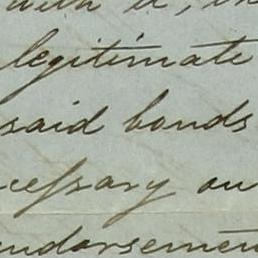 with it, in
legitimate
said bonds
cessary on
endorsemen